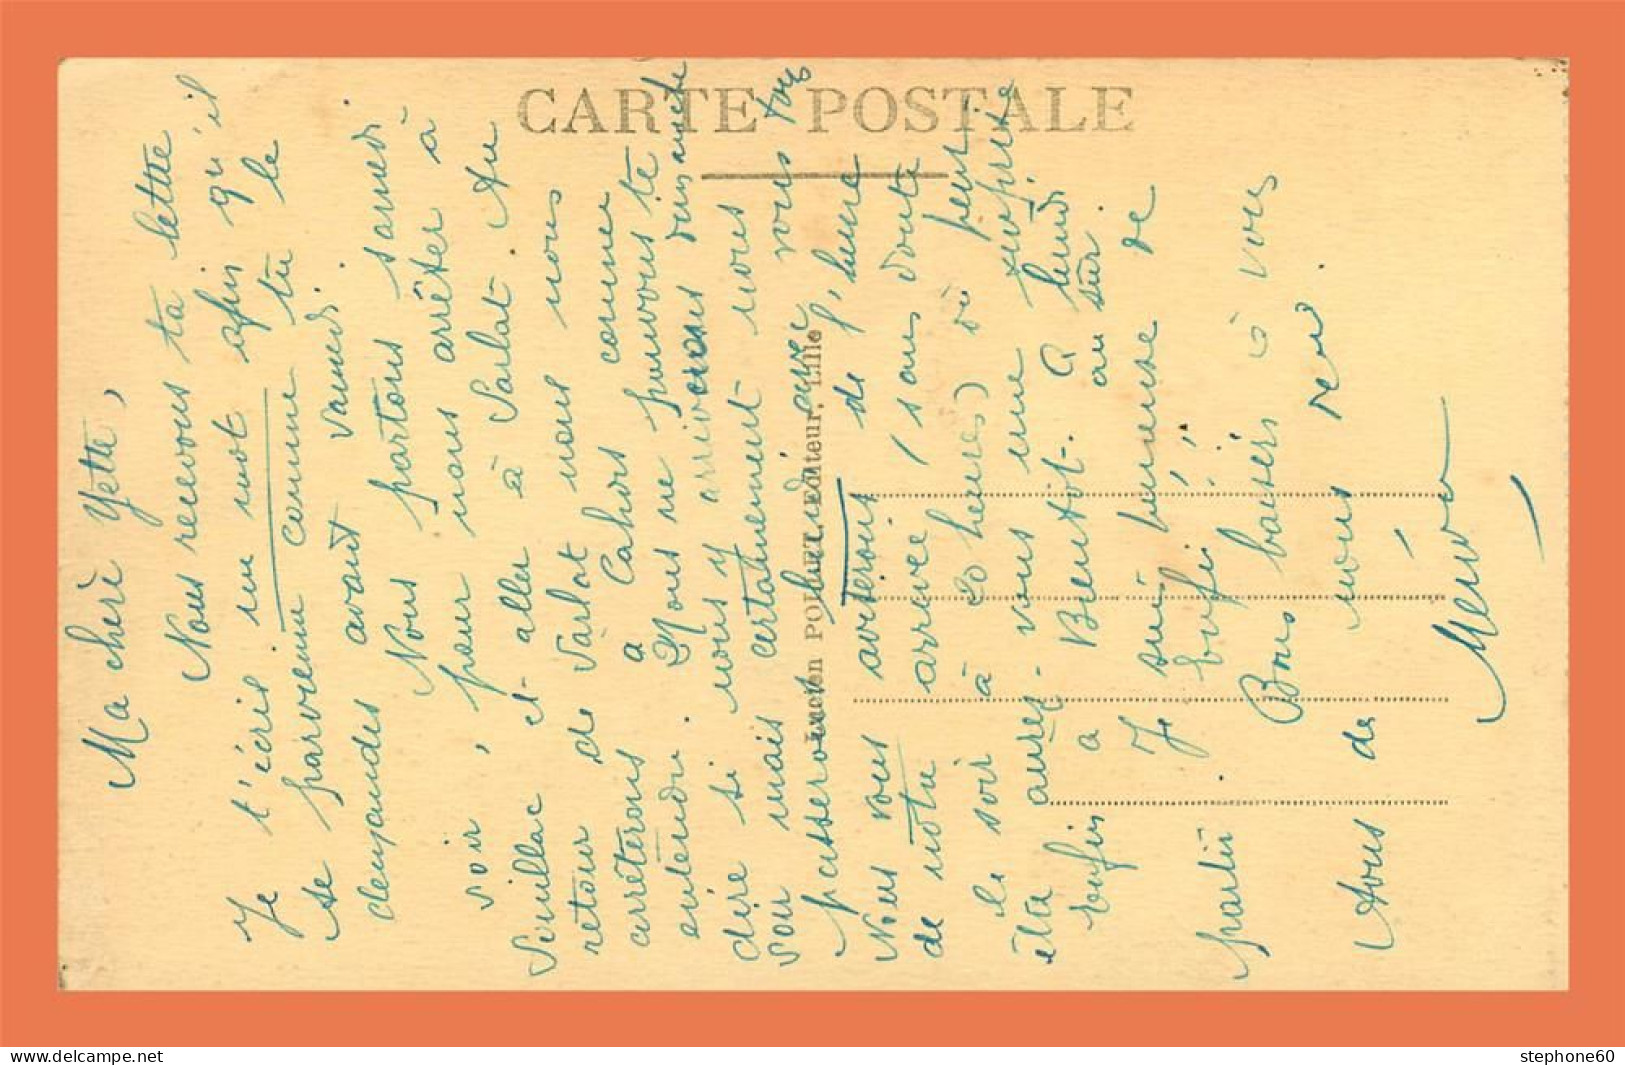 CARTE POSTALE
Lucien POLLET, Editeur, Lille
Ma chère Yette,
Nous recevons ta lettre
Je t'écris un mot afin qu'il
te parvienne comme tu le
demandes avant samedi.
Nous partons samedi
soir, pour nous arrêter à
Souillac et aller à Sarlat. Au
retour de Sarlat nous nous
arrêterons à Cahors comme
entendu. Nous ne pouvons te
dire si nous y arriverons dimanche
soir mais certainement nous nous
passerons lundi avec vous tous
Nous vous avertirons de l'heure
de notre arrivée (sans doute
le soir à 20 heures) où peut-
être aurez-vous une surprise
enfin à Bientôt. à lundi
au sûr
Je suis heureuse de
partir enfin!!
Bons baisers à vous
tous de nous deux.
Mémé
www.delcampe.net
stephone60